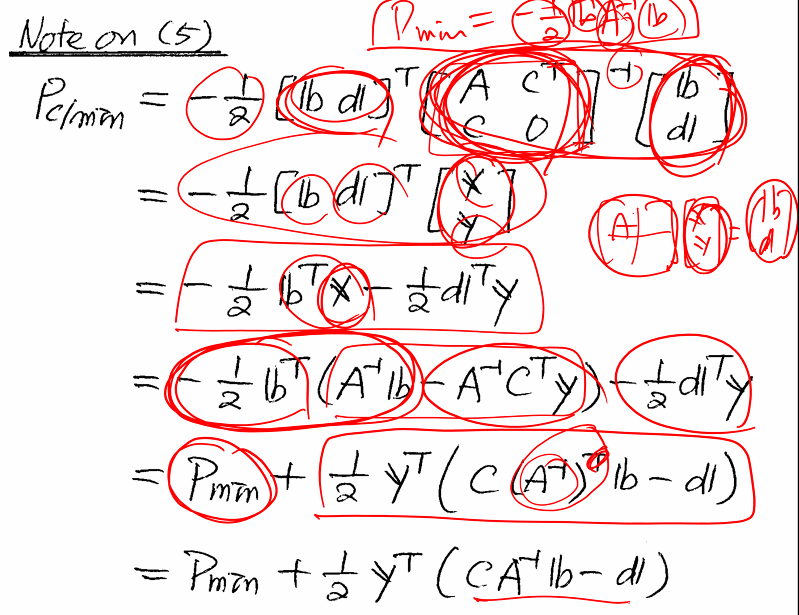 P_min = -1/2 𝕓^T A^-1 𝕓
Note on (5)
P_c/min = -1/2 [𝕓 𝕕]^T [A C^T; C 0]^-1 [𝕓; 𝕕]
= -1/2 [𝕓 𝕕]^T [𝕩; 𝕪]
[A] [𝕩; 𝕪] = [𝕓; 𝕕]
= -1/2 𝕓^T 𝕩 - 1/2 𝕕^T 𝕪
= -1/2 𝕓^T (A^-1 𝕓 - A^-1 C^T 𝕪) - 1/2 𝕕^T 𝕪
= P_min + 1/2 𝕪^T (C (A^-1)^T 𝕓 - 𝕕)
= P_min + 1/2 𝕪^T (C A^-1 𝕓 - 𝕕)